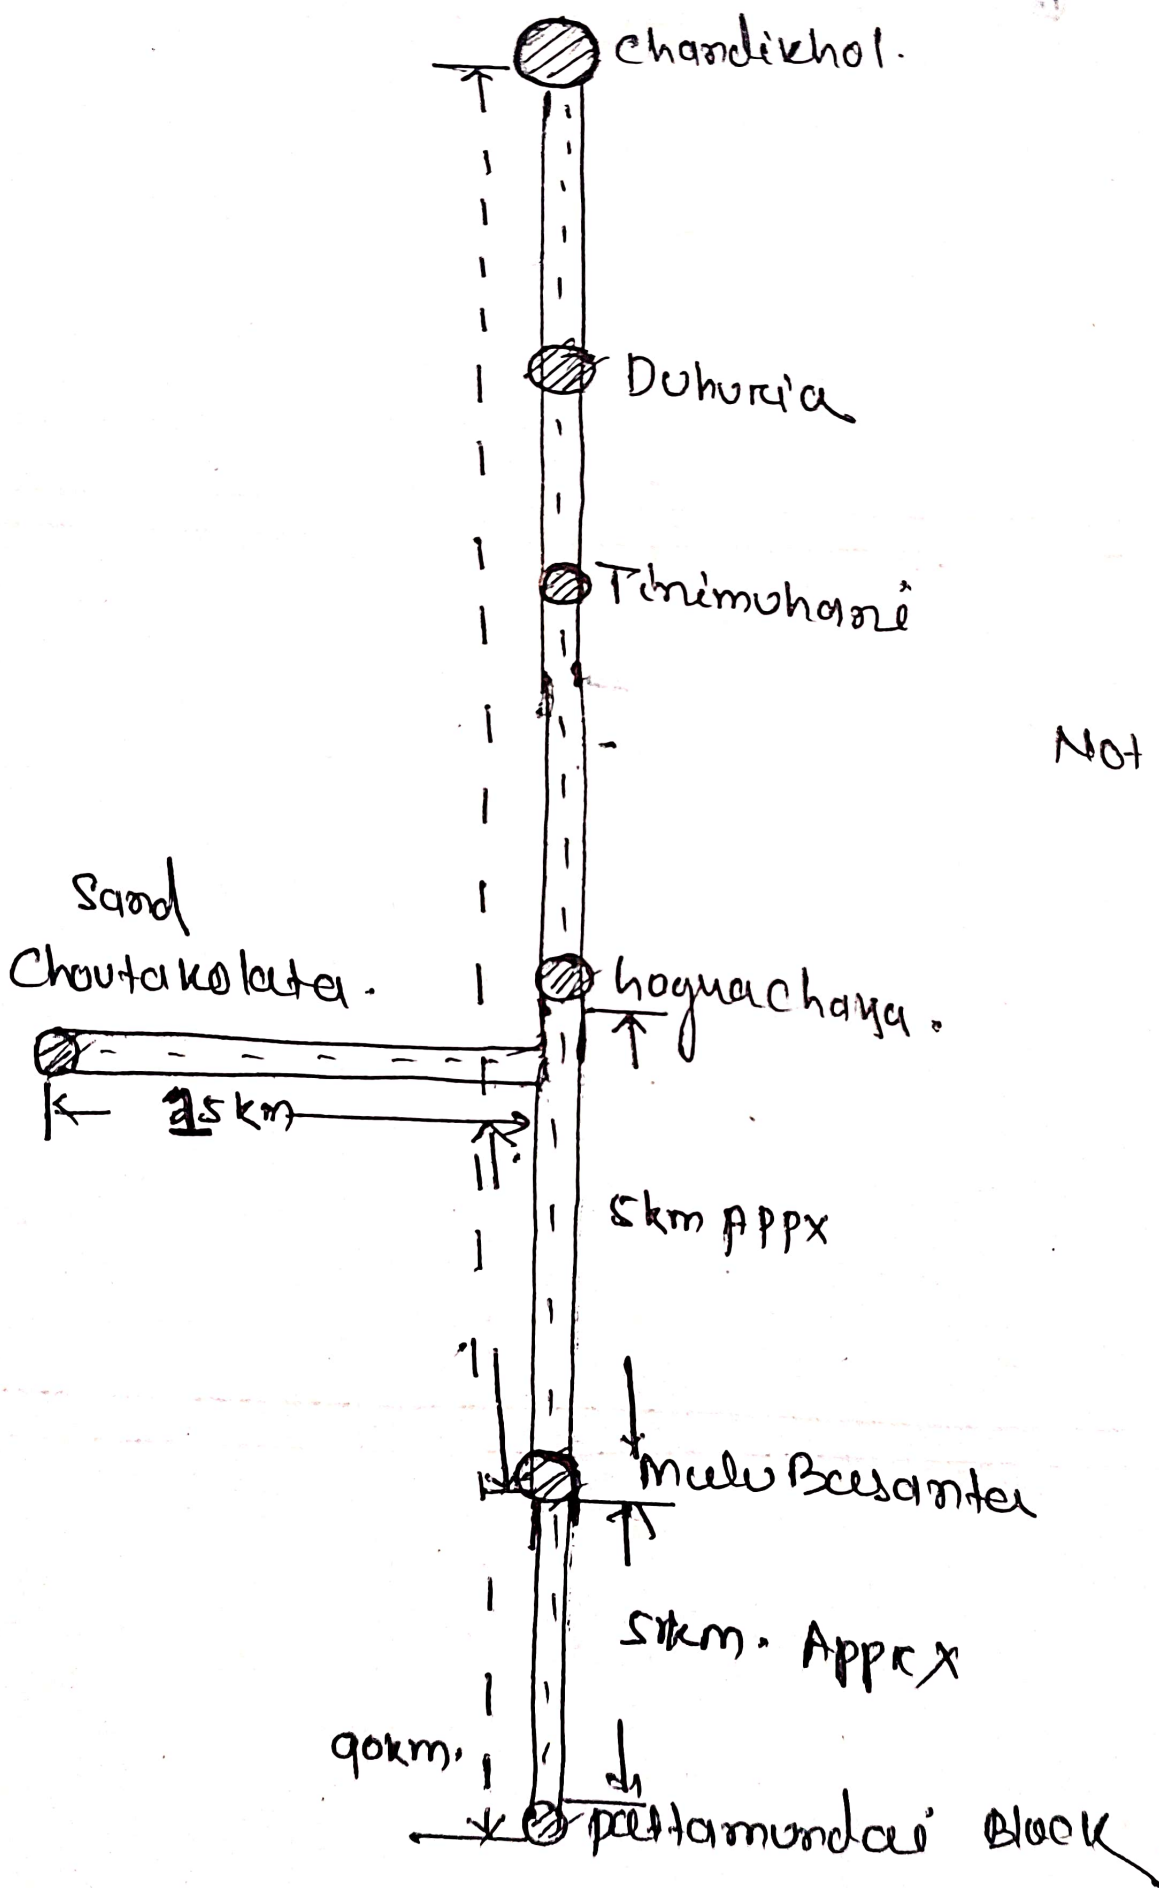 Chandikhol.
Duhuria
Tinimuhani
Not
Sand
Choutakolata.
hoguachaya.
25km
5km Appx
Mulu Basanta
5km. Apprx
90km.
pattamundai Block